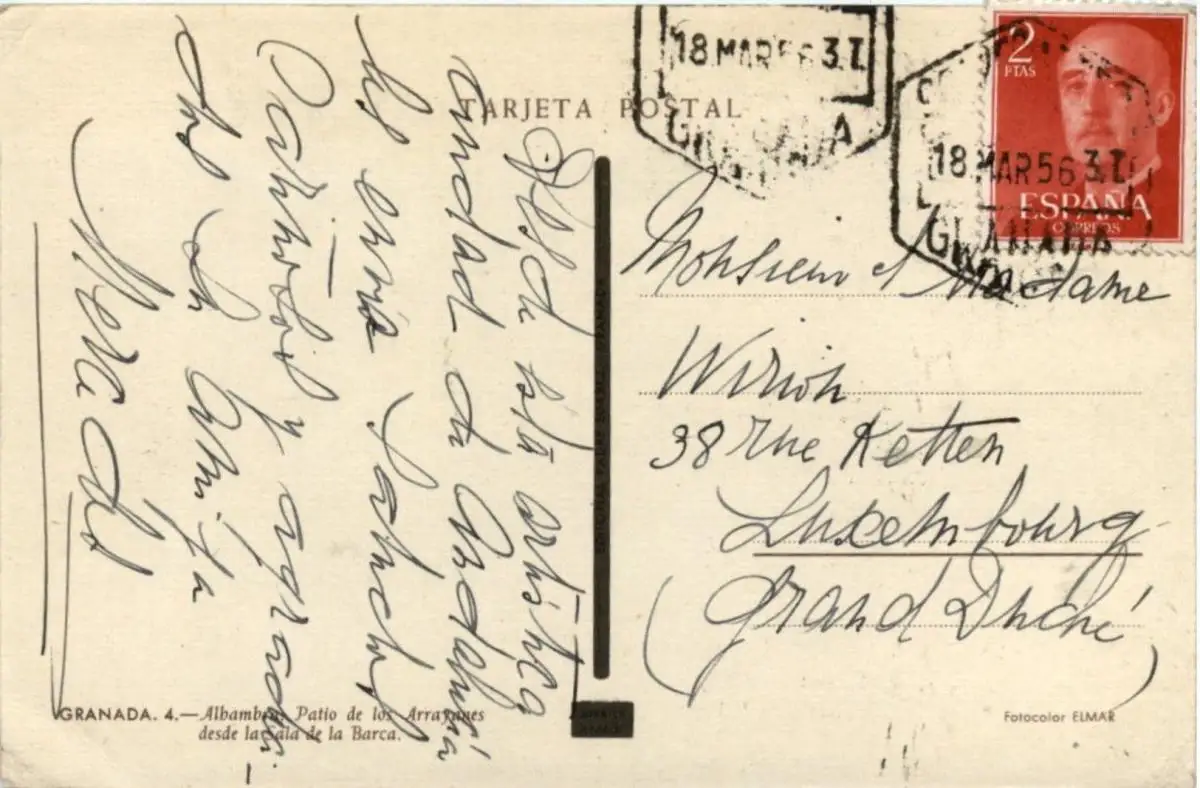 TARJETA POSTAL
18 MAR 56 3.T.
GRANADA
2
PTAS
18 MAR 56 3.T.
ESPAÑA
CORREOS
GRANADA
Desde esta artística
ciudad de Andalucía
les envía saludos
Cariñosos y agradeci-
dos su amiga
Monsieur et Madame
Wirion
38 rue Ketten
Luxembourg
(Grand Duché)
GRANADA. 4.—Alhambra. Patio de los Arrayanes
desde la Sala de la Barca.
Fotocolor ELMAR